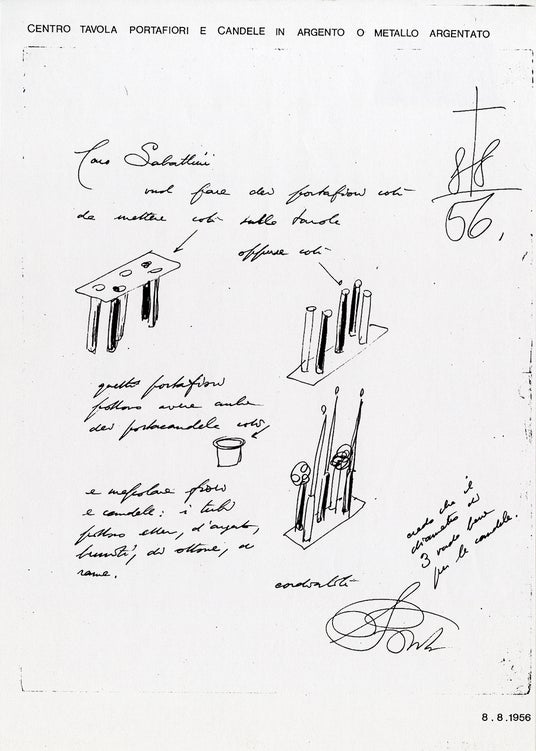 CENTRO TAVOLA PORTAFIORI E CANDELE IN ARGENTO O METALLO ARGENTATO
8 8
56.
Caro Sabattini
vuol fare dei portafiori così
da mettere così sulle tavole
oppure così
questi portafiori
possono avere anche
dei portacandele così
e mescolare fiori
e candele: i tubi
possono esser, d'argento,
bruniti, di ottone, di
rame.
credo che il
diametro di
3 vada bene
per le candele.
cordialità
8.8.1956